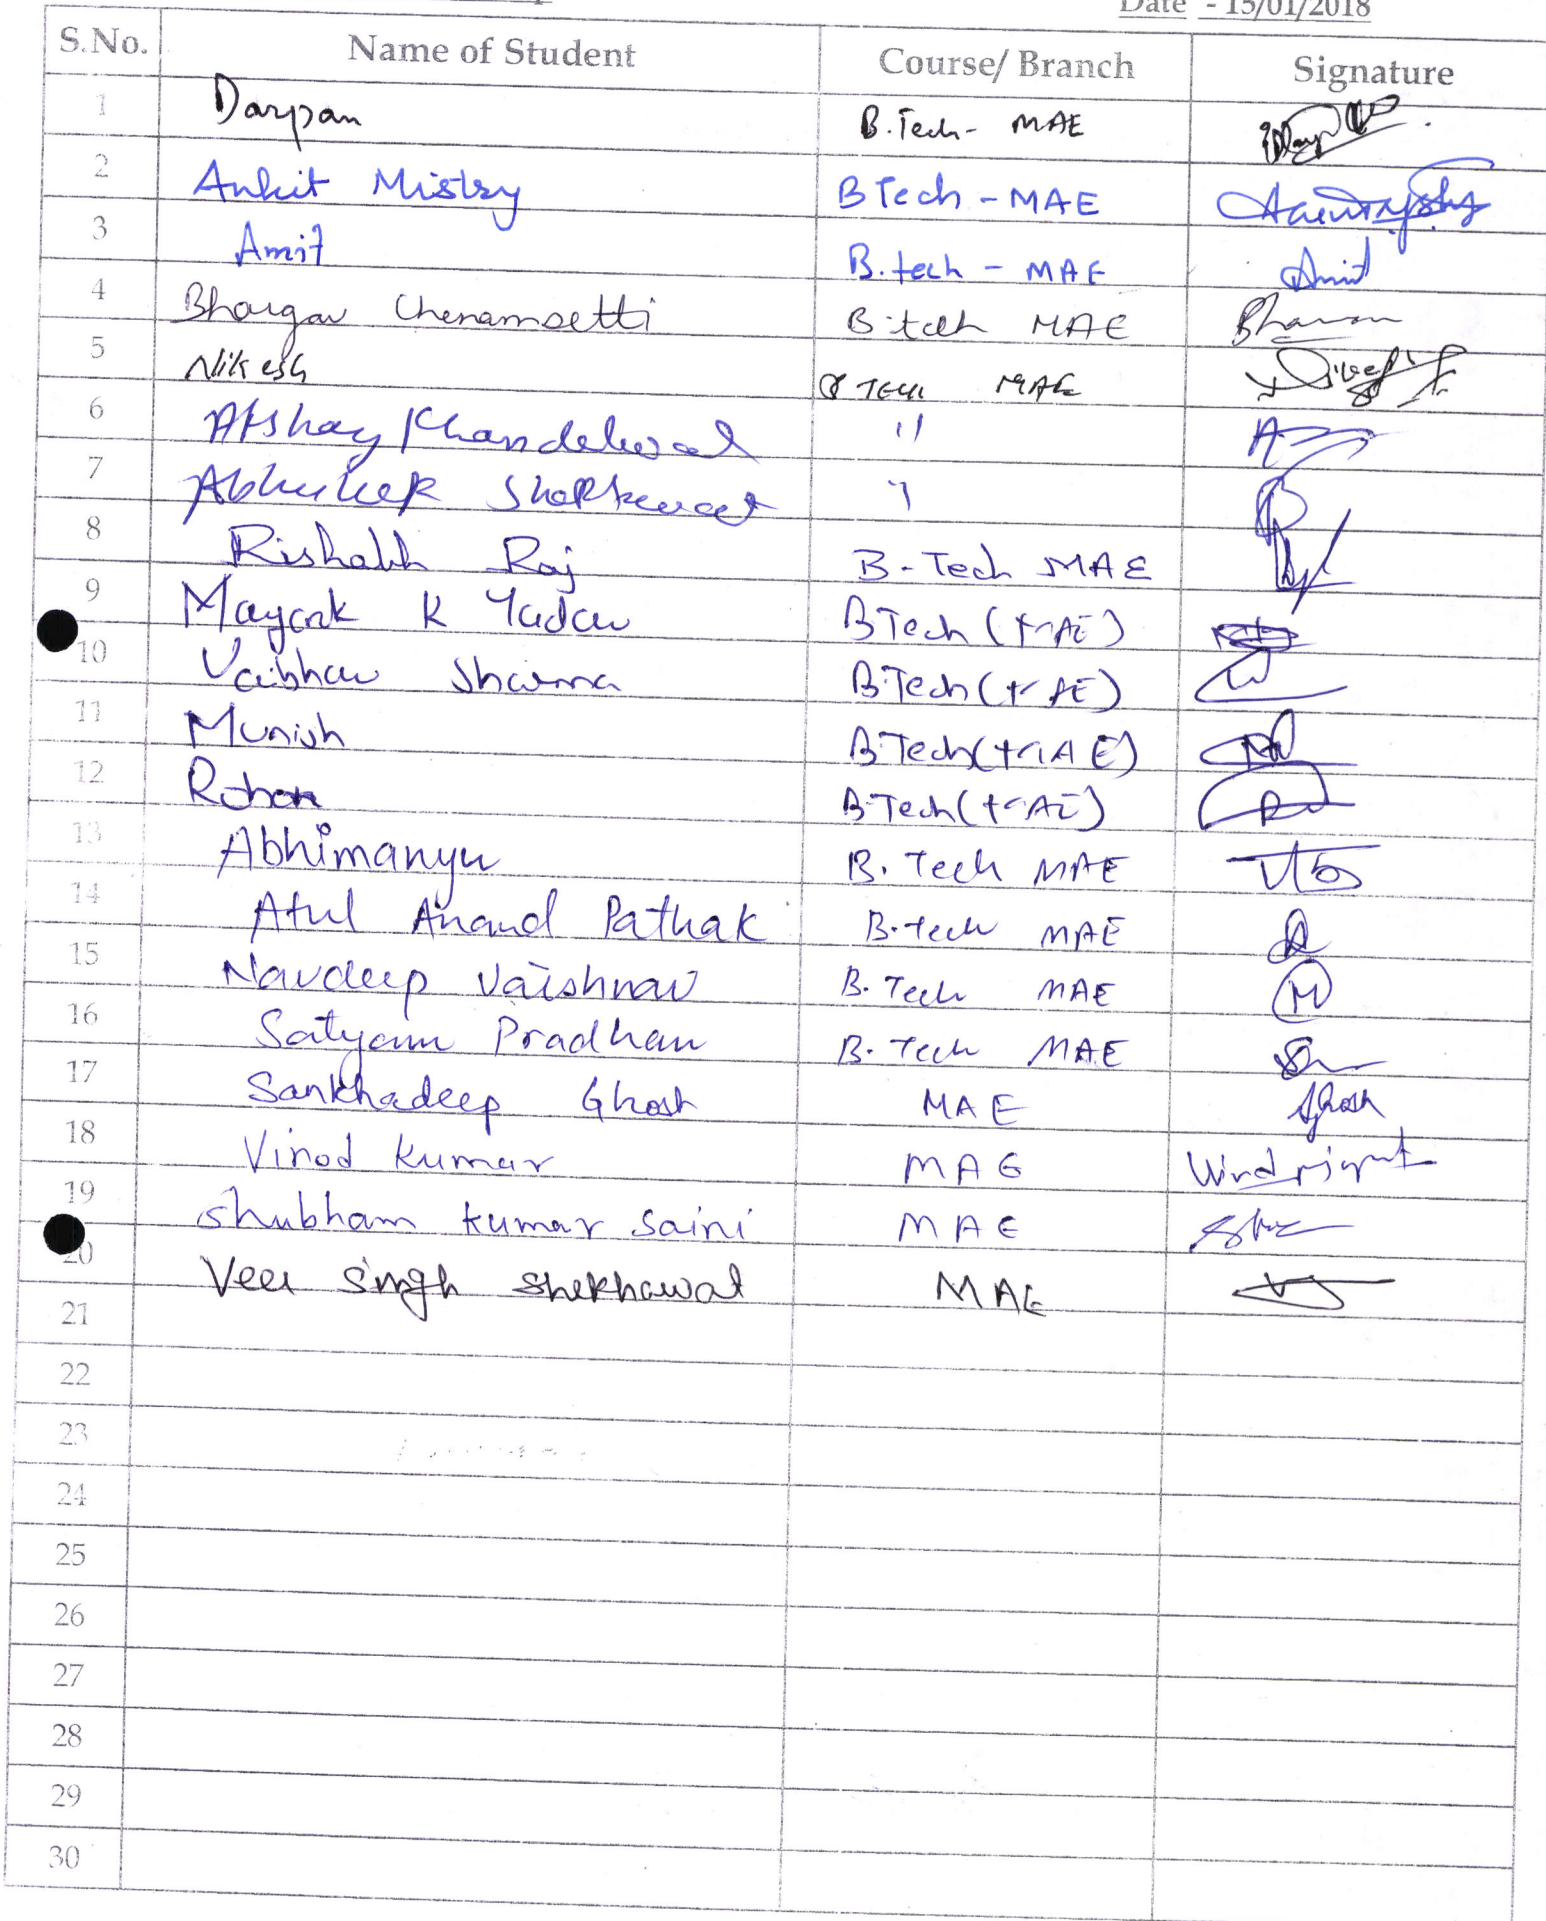 Date - 15/01/2018
S.No. Name of Student Course/ Branch Signature
1 Darpan B.Tech- MAE
2 Ankit Mistry BTech - MAE
3 Amit B.tech - MAE Amit
4 Bhargav Chenamsetti B.tech MAE
5 Nikesh B TECH MAE
6 Akshay Khandelwal "
7 Abhishek Shekhawat "
8 Rishabh Raj B-Tech MAE
9 Mayank K Yadav BTech (MAE)
10 Vaibhav Sharma B.Tech (MAE)
11 Munish B.Tech (MAE)
12 Rohan B.Tech (MAE)
13 Abhimanyu B. Tech MAE
14 Atul Anand Pathak B.tech MAE
15 Navdeep Vaishnav B. Tech MAE
16 Satyam Pradhan B. Tech MAE
17 Sankhadeep Ghosh MAE SGhosh
18 Vinod Kumar MAE
19 Shubham Kumar Saini MAE
20 Veer Singh Shekhawat MAE
21
22
23
24
25
26
27
28
29
30